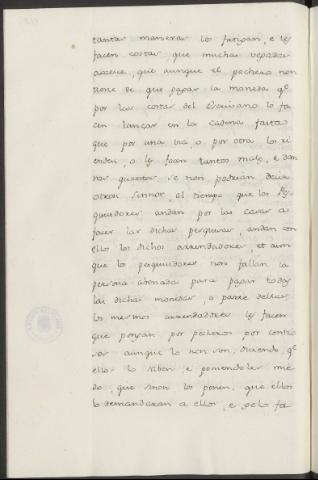 tantas maneras los fatigan, e les
facen costas, que muchas vegadas
acaece, que aunque el pechero non
tiene de que pagar la moneda qe.
por las costas del Escrivano lo fa
cen lançar en la cadena fasta
que por una via o por otra los ri
enden, e les facen tantos males, e dan
nos quantos se non podrian decir
otrosi Sennor, al tiempo que los Pes
quiidores andan por las casas a
facer las dichas pesquisas, andan con
ellos los dichos arrendadores et aun
que los pesquiidores non fallan la
persona abonada para pagar todas
las dichas monedas, o parte dellas,
los mesmos arrendadores les facen
que pongan por pecheros por contio
sos aunque lo non son, diciendo, qe.
ellos lo saben, e poniendoles mie
do, que sinon los ponen, que ellos
lo demandaran a ellos, e gelo fa